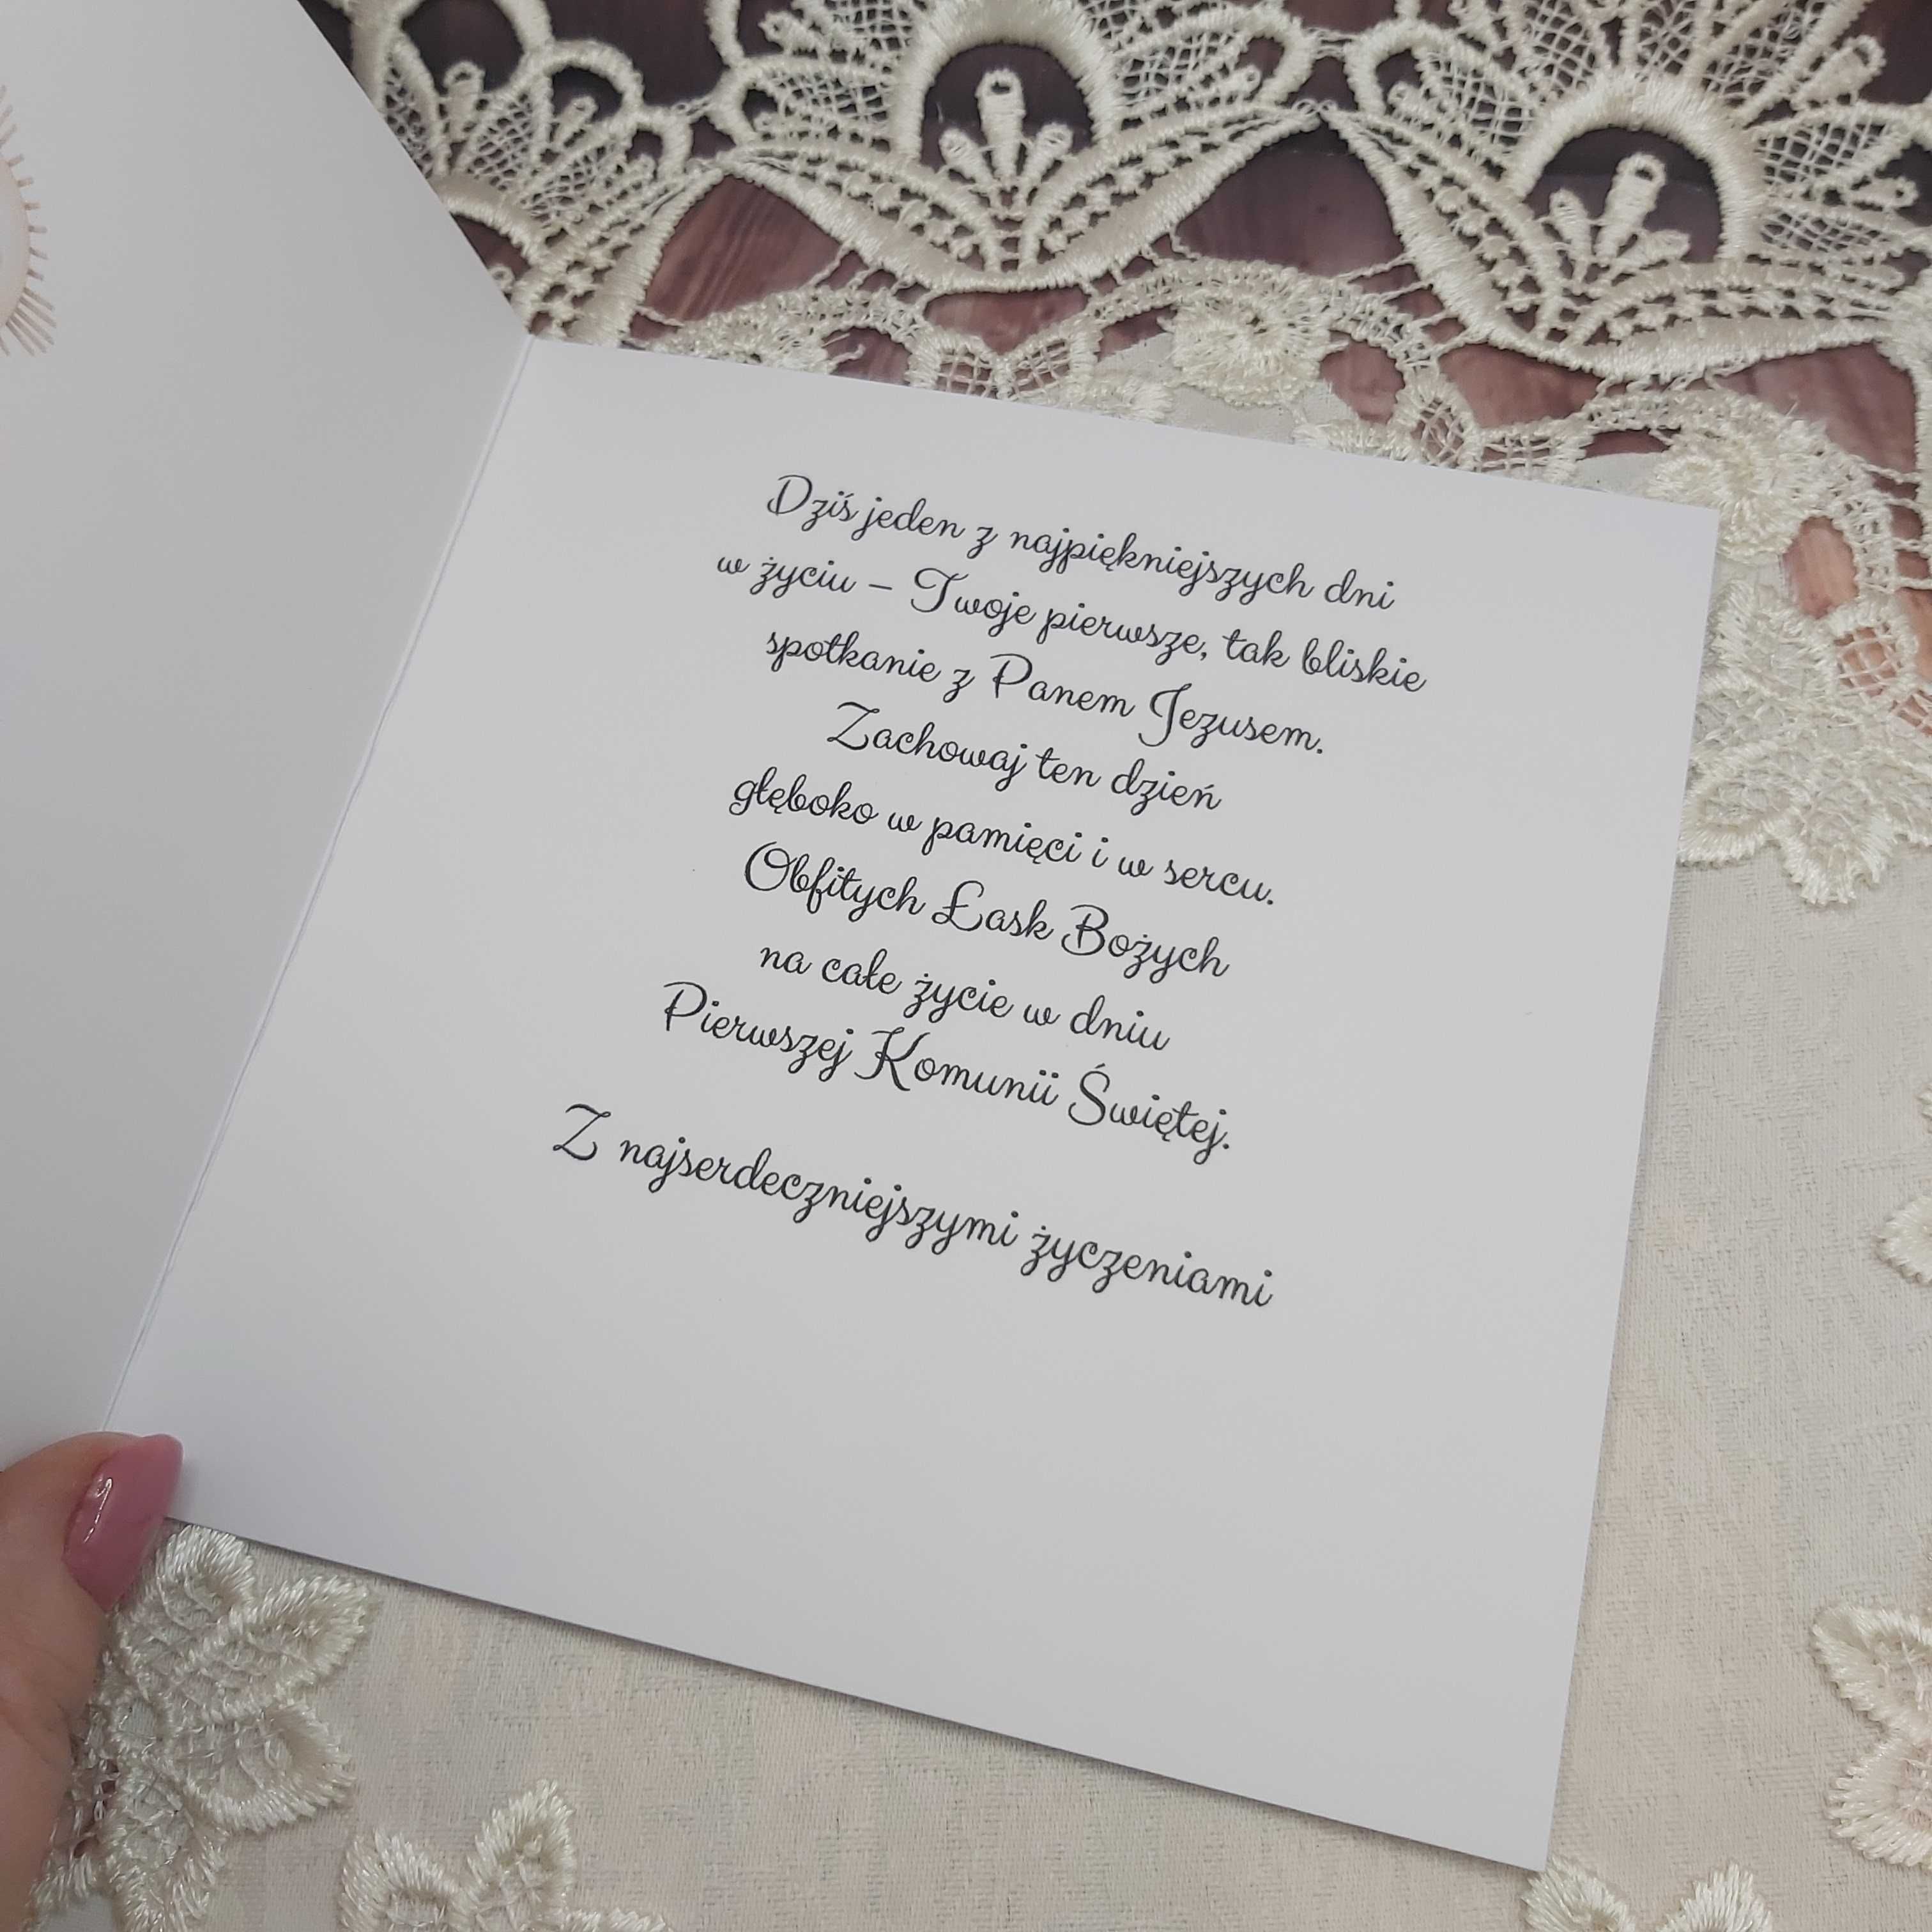 Dziś jeden z najpiękniejszych dni
w życiu – Twoje pierwsze, tak bliskie
spotkanie z Panem Jezusem.
Zachowaj ten dzień
głęboko w pamięci i w sercu.
Obfitych Łask Bożych
na całe życie w dniu
Pierwszej Komunii Świętej.
Z najserdeczniejszymi życzeniami